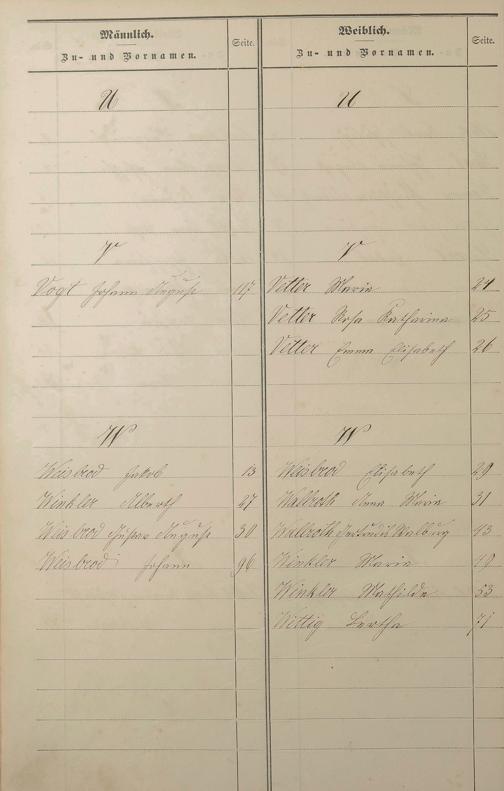 Männlich.
Zu- und Vornamen.
Seite.
U
V
Vogt Johann August 117
W
Weisbrod Jakob 13
Winkler Alberth 27
Weisbrod Gustav August 30
Weisbrod Johann 96
Weiblich.
Zu- und Vornamen.
Seite.
U
V
Vetter Maria 21
Vetter Rosa Katharina 25
Vetter Emma Elisabeth 26
W
Weisbrod Elisabeth 29
Wallroth Anna Maria 31
Wallroth Walburg 43
Winkler Maria 49
Winkler Mathilde 53
Wittig Bertha 71